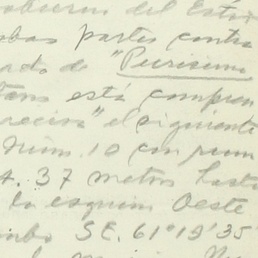 gobierno del Estado
ambas partes contra
ado de "Purisima
tans está compren
preciosa" el siguiente
Núm. 10 con rum
t. 37 metros hasta
la esquina Oeste
umbo SE. 61°19'35"